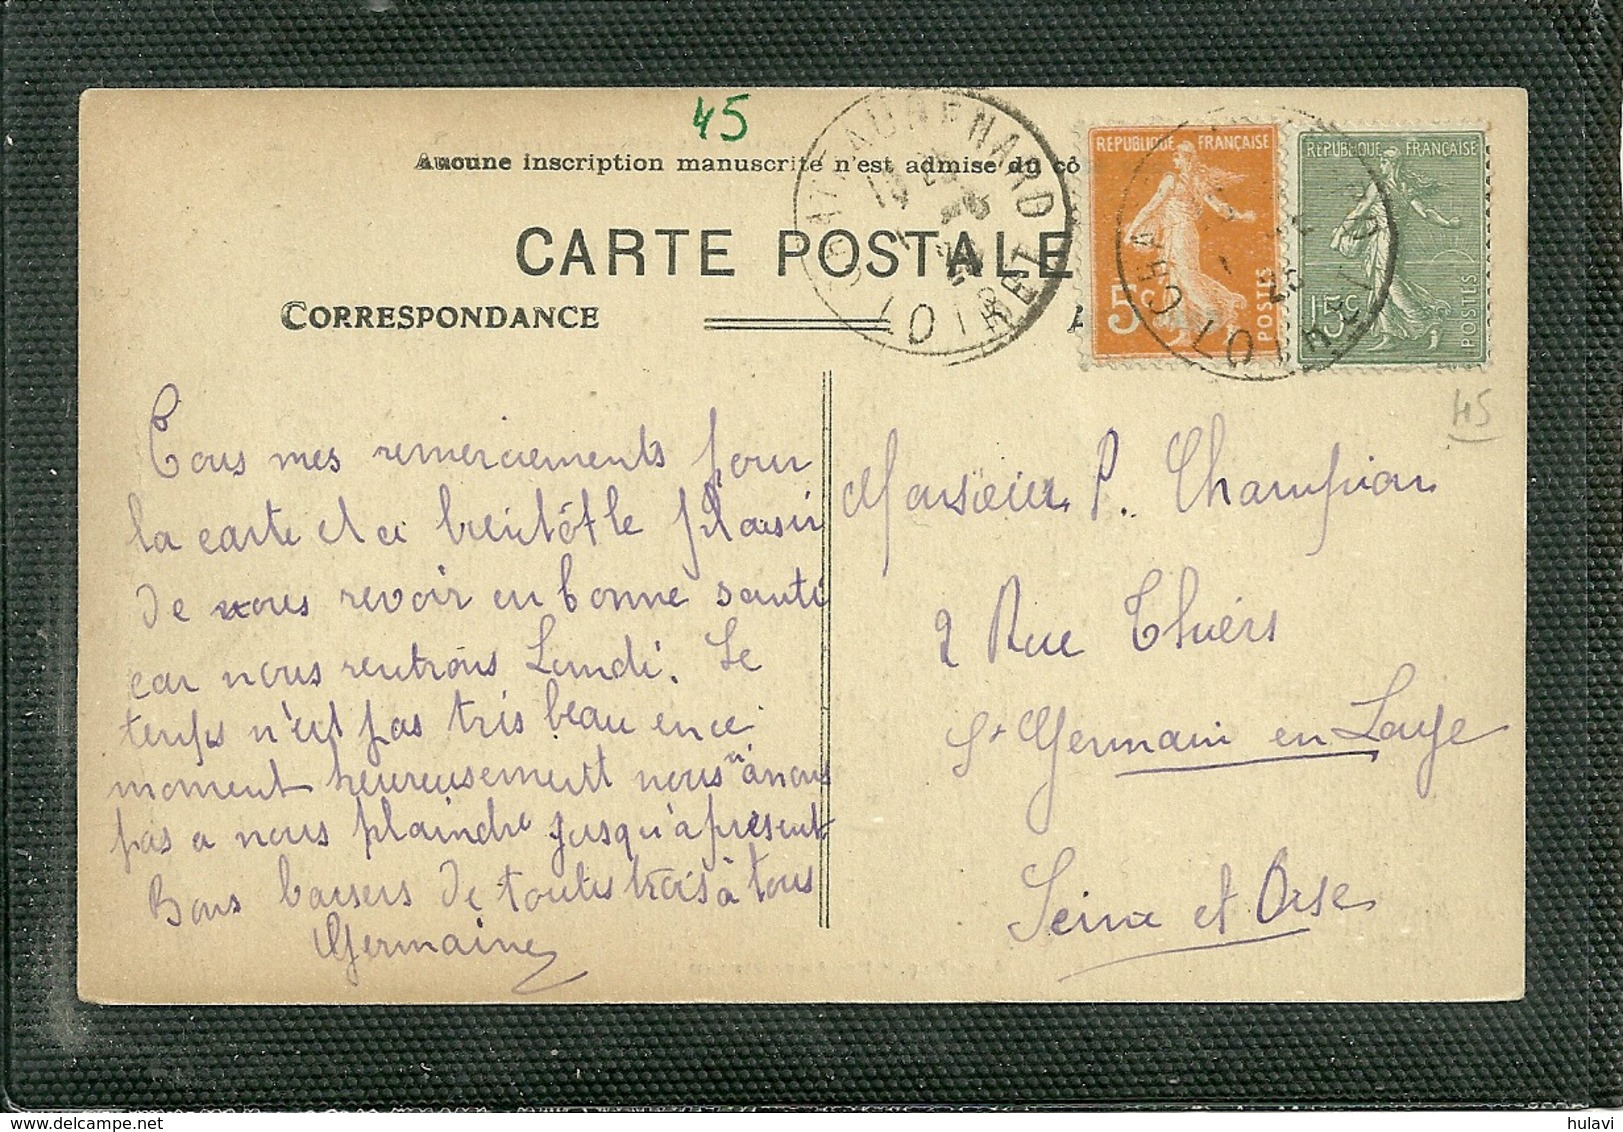 45
Aucune inscription manuscrite n'est admise du cô
CARTE POSTALE
CORRESPONDANCE
CHATEAURENARD
LOIRET
REPUBLIQUE FRANÇAISE
5c
POSTES
REPUBLIQUE FRANÇAISE
15c
POSTES
45
Tous mes remerciements pour
la carte et a bientôt le plaisir
de vous revoir en bonne santé
car nous rentrons Lundi. Le
temps n'est pas tris beau en ce
moment heureusement nous n'avons
pas a nous plaindre jusqu'à présent
Bons baisers de toutes trois à tous
Germaine
Monsieur P. Champion
2 Rue Thiers
St Germain en Laye
Seine et Oise
hulavi